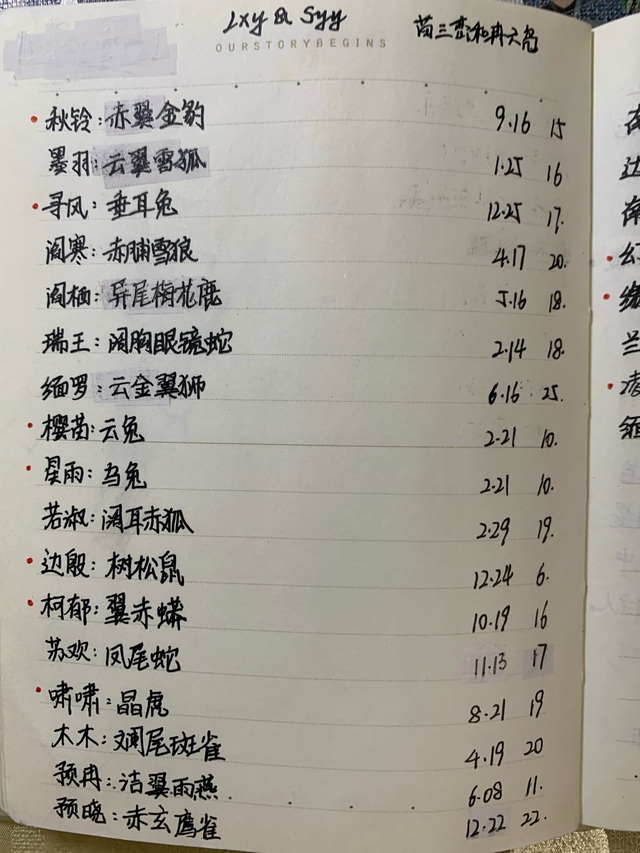 Lxy & Syy
OURSTORYBEGINS
苗三峦和冉大亮
秋铃：赤翼金豹 9.16 15
墨羽：云翼雪狐 1.25 16
寻风：垂耳兔 12.25 17.
阎寒：赤脯雪狼 4.17 20.
阎栖：异尾梅花鹿 5.16 18.
瑞王：阔胸眼镜蛇 2.14 18.
缅罗：云金翼狮 6.16 25.
樱苗：云兔 2.21 10.
星雨：乌兔 2.21 10.
若淑：阔耳赤狐 2.29 19.
边殷：树松鼠 12.24 6.
柯郁：翼赤蟒 10.19 16
苏欢：凤尾蛇 11.13 17
啸啸：晶虎 8.21 19
木木：斓尾斑雀 4.19 20
预冉：洁翼雨燕. 6.08 11.
预晓：赤玄鹰雀 12.22 22.